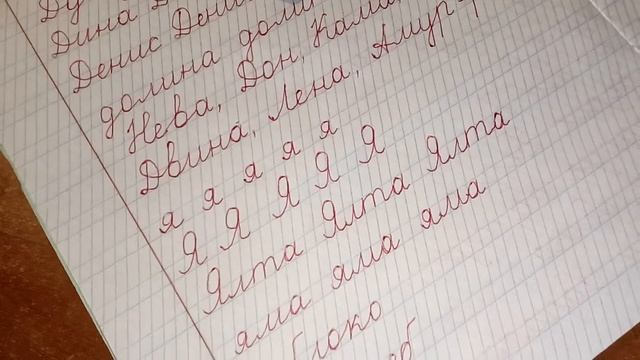 Ду
Дина Д
Денис Денис
долина доли
Нева, Дон, Кама,
Двина, Лена, Амур
я я я я я
Я Я Я Я Я
Ялта Ялта Ялта
яма яма яма